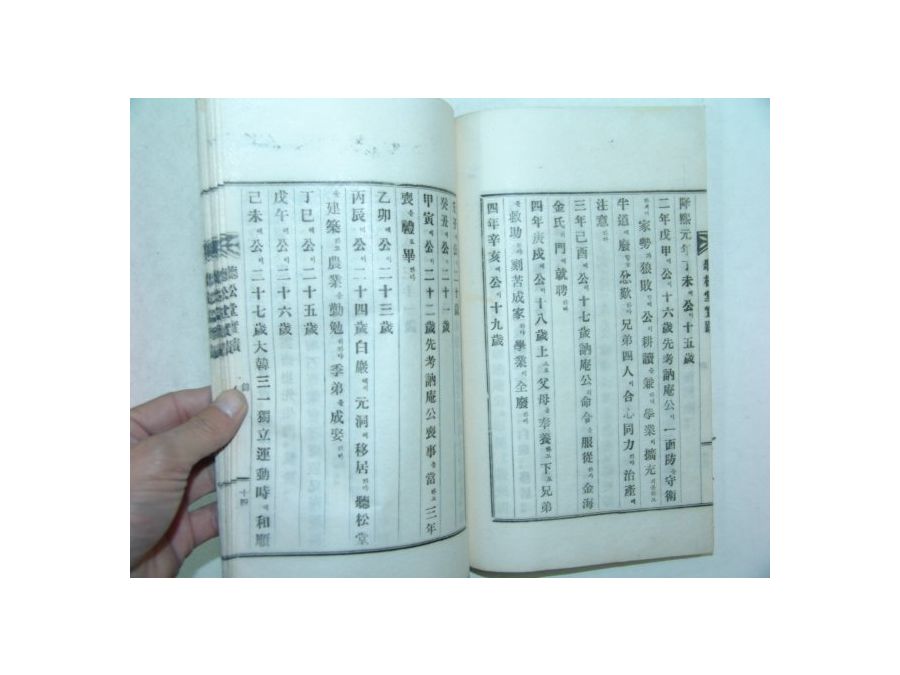 隆熙元年丁未에公이十五歲
二年戊申에公이十六歲先考訥庵公이一面防을守衛
家勢가狼敗에公이耕讀을兼하더니學業이擴充
半道에廢함을忿歎하야兄弟四人이合心同力하야治產에
注意하다
三年己酉에公이十七歲訥庵公의命令을服從하야金海
金氏의門에就聘하다
四年庚戌에公이十八歲上으로父母를奉養하고下로兄弟
를救助하야刻苦成家하야學業이全廢하다
四年辛亥에公이十九歲
癸丑에公이二十一歲
甲寅에公이二十二歲先考訥庵公喪事를當하고三年
喪을禮로畢하다
乙卯에公이二十三歲
丙辰에公이二十四歲白巖에서元洞에移居하야聽松堂
을建築하고農業을勤勉히하야季弟를成娶하다
丁巳에公이二十五歲
戊午에公이二十六歲
己未에公이二十七歲大韓三一獨立運動時에和順
十四